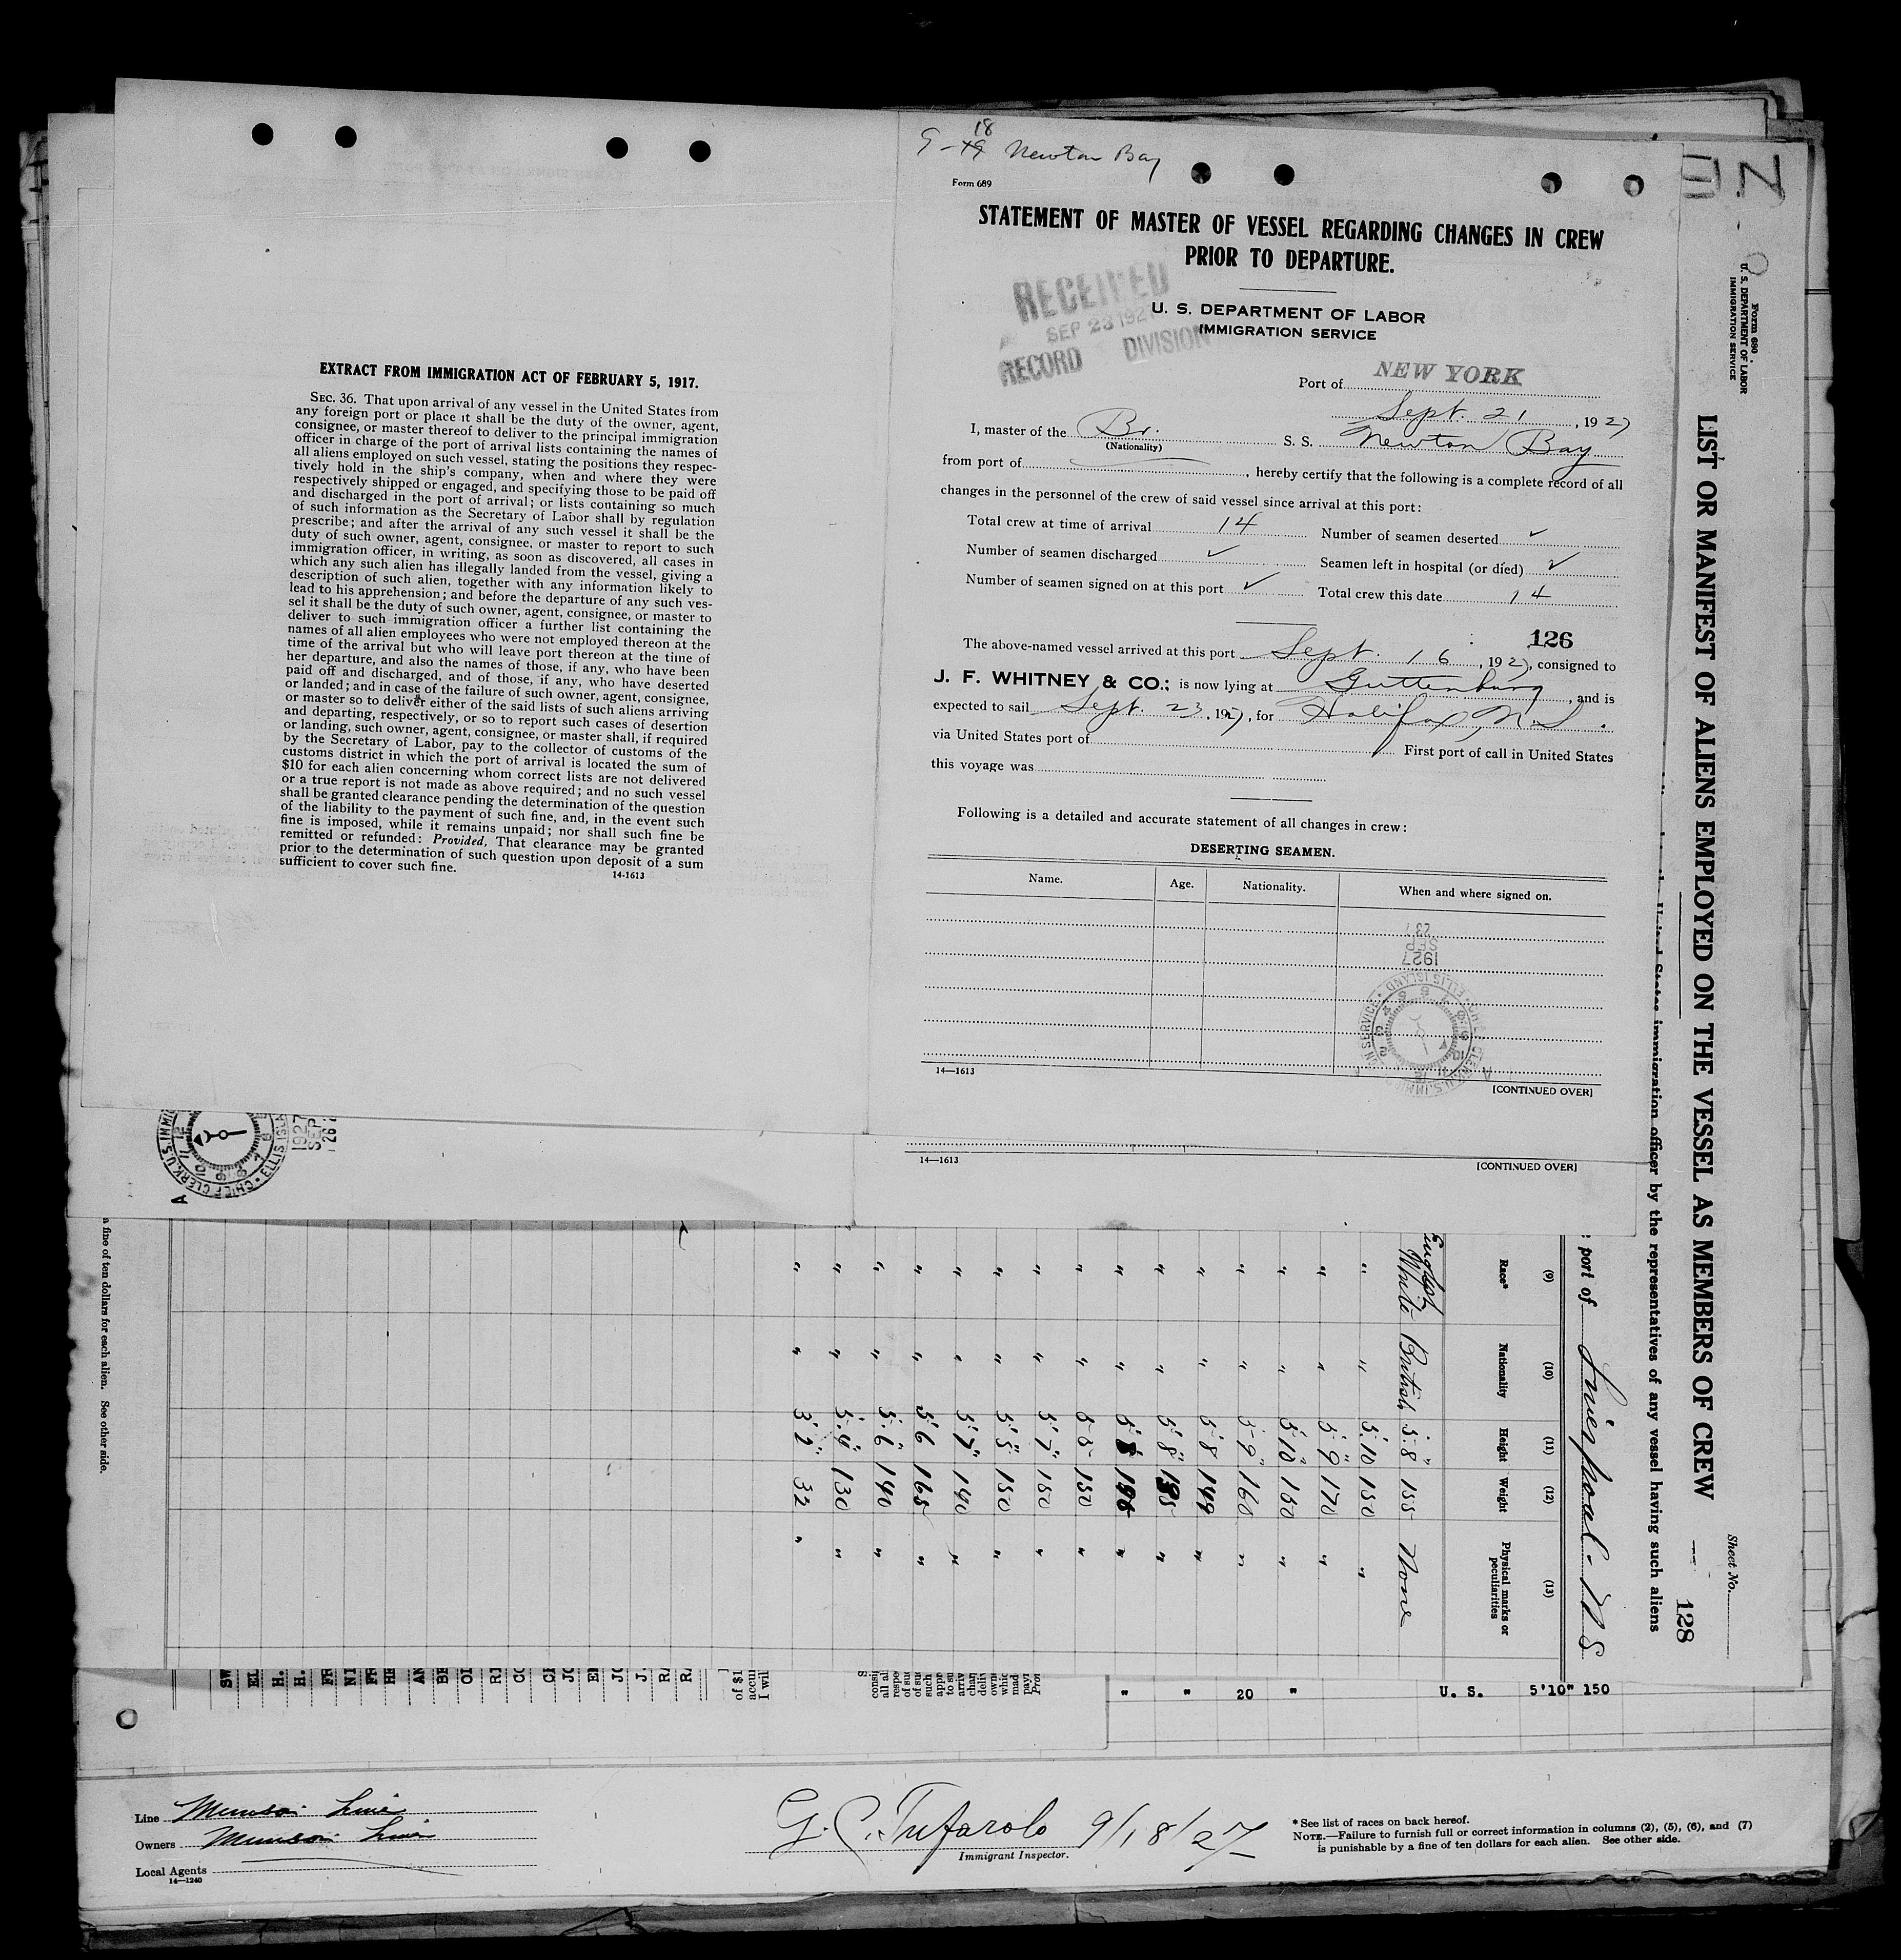 EXTRACT FROM IMMIGRATION ACT OF FEBRUARY 5, 1917.
SEC. 36. That upon arrival of any vessel in the United States from
any foreign port or place it shall be the duty of the owner, agent,
consignee, or master thereof to deliver to the principal immigration
officer in charge of the port of arrival lists containing the names of
all aliens employed on such vessel, stating the positions they respec-
tively hold in the ship's company, when and where they were
respectively shipped or engaged, and specifying those to be paid off
and discharged in the port of arrival; or lists containing so much
of such information as the Secretary of Labor shall by regulation
prescribe; and after the arrival of any such vessel it shall be the
duty of such owner, agent, consignee, or master to report to such
immigration officer, in writing, as soon as discovered, all cases in
which any such alien has illegally landed from the vessel, giving a
description of such alien, together with any information likely to
lead to his apprehension; and before the departure of any such ves-
sel it shall be the duty of such owner, agent, consignee, or master to
deliver to such immigration officer a further list containing the
names of all alien employees who were not employed thereon at the
time of the arrival but who will leave port thereon at the time of
her departure, and also the names of those, if any, who have been
paid off and discharged, and of those, if any, who have deserted
or landed; and in case of the failure of such owner, agent, consignee,
or master so to deliver either of the said lists of such aliens arriving
and departing, respectively, or so to report such cases of desertion
or landing, such owner, agent, consignee, or master shall, if required
by the Secretary of Labor, pay to the collector of customs of the
customs district in which the port of arrival is located the sum of
$10 for each alien concerning whom correct lists are not delivered
or a true report is not made as above required; and no such vessel
shall be granted clearance pending the determination of the question
of the liability to the payment of such fine, and, in the event such
fine is imposed, while it remains unpaid; nor shall such fine be
remitted or refunded: Provided, That clearance may be granted
prior to the determination of such question upon deposit of a sum
sufficient to cover such fine.
14-1613
9-19 18 Newton Bay
Form 689
STATEMENT OF MASTER OF VESSEL REGARDING CHANGES IN CREW
PRIOR TO DEPARTURE.
RECEIVED
SEP 23 1927
RECORD DIVISION
U. S. DEPARTMENT OF LABOR
IMMIGRATION SERVICE
Port of NEW YORK
Sept. 21, 1927
I, master of the Br. S. S. Newton Bay
(Nationality)
from port of, hereby certify that the following is a complete record of all
changes in the personnel of the crew of said vessel since arrival at this port:
Total crew at time of arrival 14 Number of seamen deserted ✓
Number of seamen discharged ✓ Seamen left in hospital (or died) ✓
Number of seamen signed on at this port ✓ Total crew this date 14
126
The above-named vessel arrived at this port Sept. 16, 1927, consigned to
J. F. WHITNEY & CO.; is now lying at Guttenburg, and is
expected to sail Sept. 23, 1927, for Halifax, N.S.
via United States port of First port of call in United States
this voyage was
Following is a detailed and accurate statement of all changes in crew:
DESERTING SEAMEN.
Name. Age. Nationality. When and where signed on.
1927
SEP
23
CHIEF CLERK U.S. IMMIGRATION SERVICE ELLIS ISLAND
14—1613
[CONTINUED OVER]
14—1613
[CONTINUED OVER]
CHIEF CLERK U.S. IMMI
ELLIS ISLA
1927
SEP
26
A
Form 680
U. S. DEPARTMENT OF LABOR
IMMIGRATION SERVICE
LIST OR MANIFEST OF ALIENS EMPLOYED ON THE VESSEL AS MEMBERS OF CREW
Sheet No.
128
United States immigration officer by the representatives of any vessel having such aliens
port of Liverpool - N S
(9) (10) (11) (12) (13)
Race* Nationality Height Weight Physical marks or peculiarities
English White British 5.8" 155 None
" " 5.10 150 "
" " 5.9" 170 "
" " 5.10" 160 "
" " 5.9" 160 "
" " 5.8 149 "
" " 5.8" 195 "
" " 5.8 196 "
" " 5.5 150 "
" " 5.7" 150 "
" " 5.5" 150 "
" " 5.7" 140 "
" " 5.6 165 "
" " 5.6" 140 "
" " 5.4" 130 "
" " 3.2" 32 "
a fine of ten dollars for each alien. See other side.
" " 20 " U. S. 5'10" 150
Line Munson Line
Owners Munson Line
Local Agents
14—1240
G. C. Tufarolo 9/18/27
Immigrant Inspector.
* See list of races on back hereof.
NOTE.—Failure to furnish full or correct information in columns (2), (5), (6), and (7)
is punishable by a fine of ten dollars for each alien. See other side.